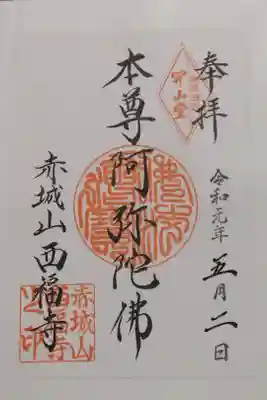 奉拝
令和元年
五月二日
本尊阿弥陀佛
赤城山西福寺
赤城山
西福寺
之印